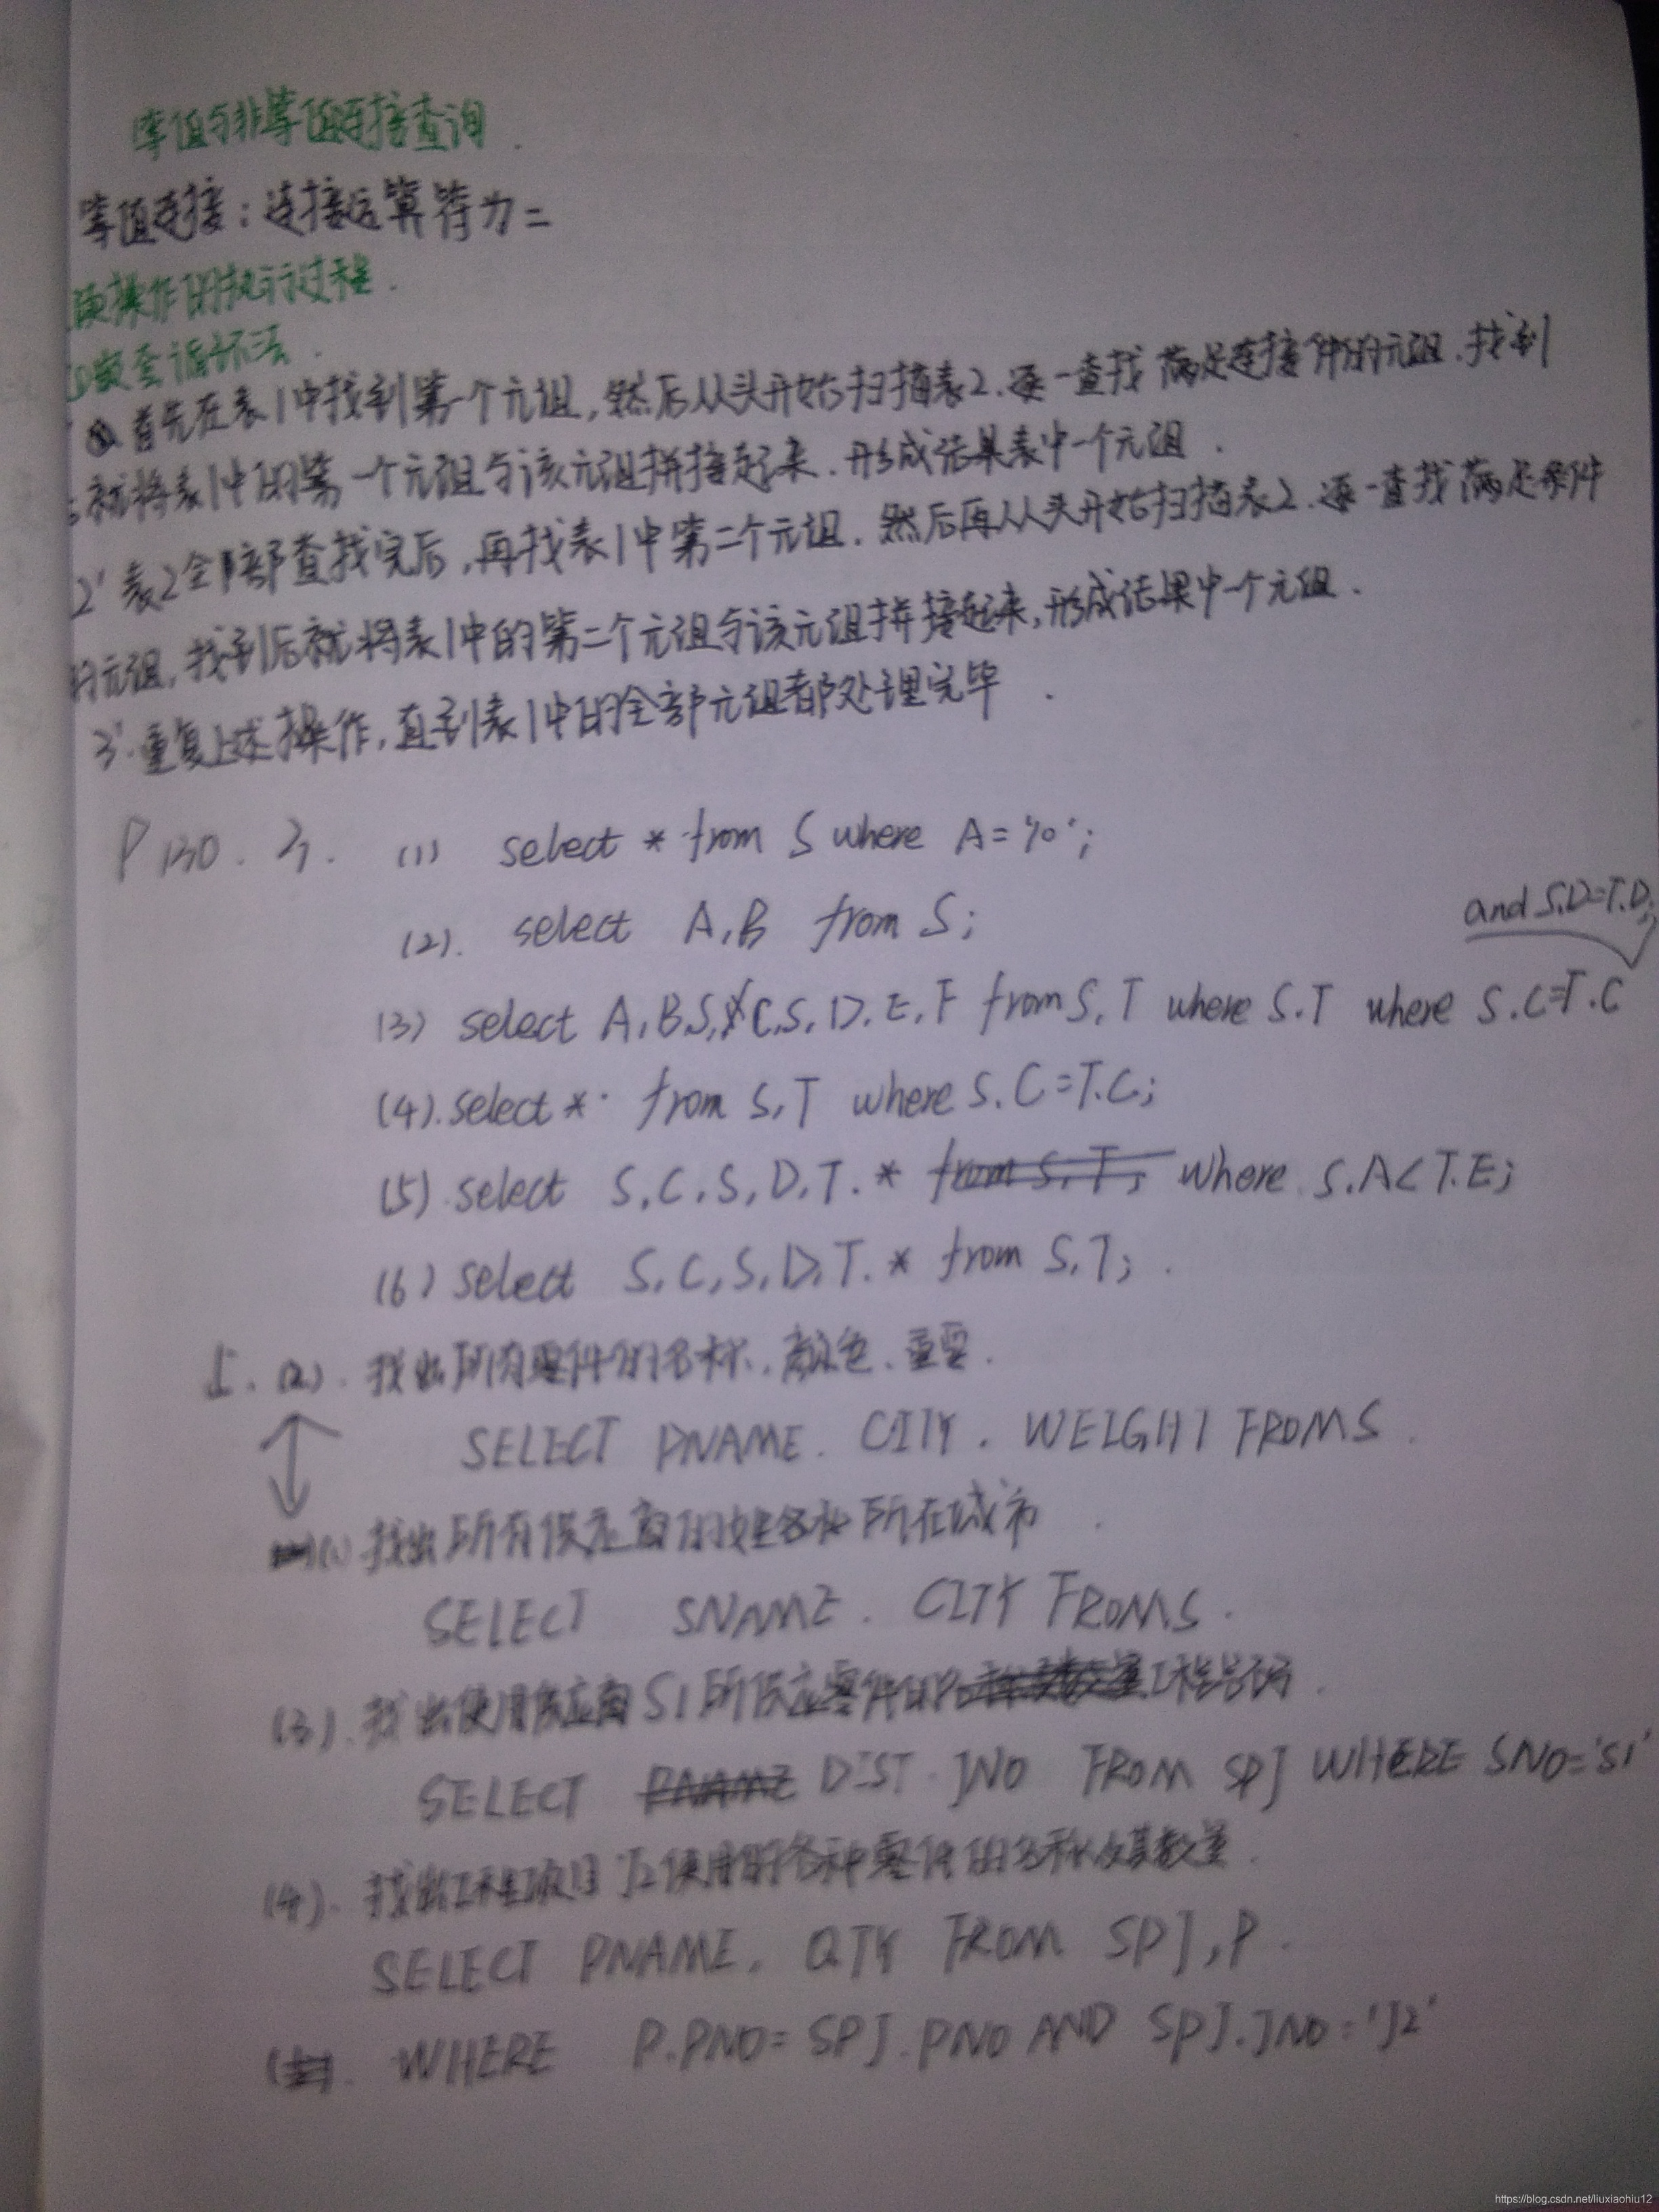 等值与非等值连接查询.
等值连接:连接运算符为=
操作的执行过程.
嵌套循环法.
首先在表1中找到第一个元组,然后从头开始扫描表2.逐一查找满足连接件的元组.找到
就将表1中的第一个元组与该元组拼接起来.形成结果表中一个元组.
2' 表2全部查找完后,再找表1中第二个元组.然后再从头开始扫描表2.逐一查找满足条件
的元组,找到后就将表1中的第二个元组与该元组拼接起来,形成结果中一个元组.
3'.重复上述操作,直到表1中的全部元组都处理完毕.
P130. 3. (1) select * from S where A='10';
(2). select A,B from S;
and S.D=T.D;
(3) select A,B,S,C,S,D,E,F from S,T where S.T where S.C=T.C
(4).select * from S,T where S.C=T.C;
(5).select S.C,S.D,T.* from S,T; where S.A<T.E;
(6) select S.C,S.D,T.* from S,T;
5. (2). 找出所有零件的名称、颜色、重量.
SELECT PNAME. CITY. WEIGHT FROM S.
(1) 找出所有供应商的姓名和所在城市.
SELECT SNAME. CITY FROM S.
(3). 找出使用供应商S1所供应零件的工程号码.
SELECT PNAME DIST JNO FROM SPJ WHERE SNO='S1'
(4). 找出工程项目J2使用的各种零件的名称及其数量.
SELECT PNAME, QTY FROM SPJ,P.
WHERE P.PNO=SPJ.PNO AND SPJ.JNO='J2'
https://blog.csdn.net/liuxiaohiu12